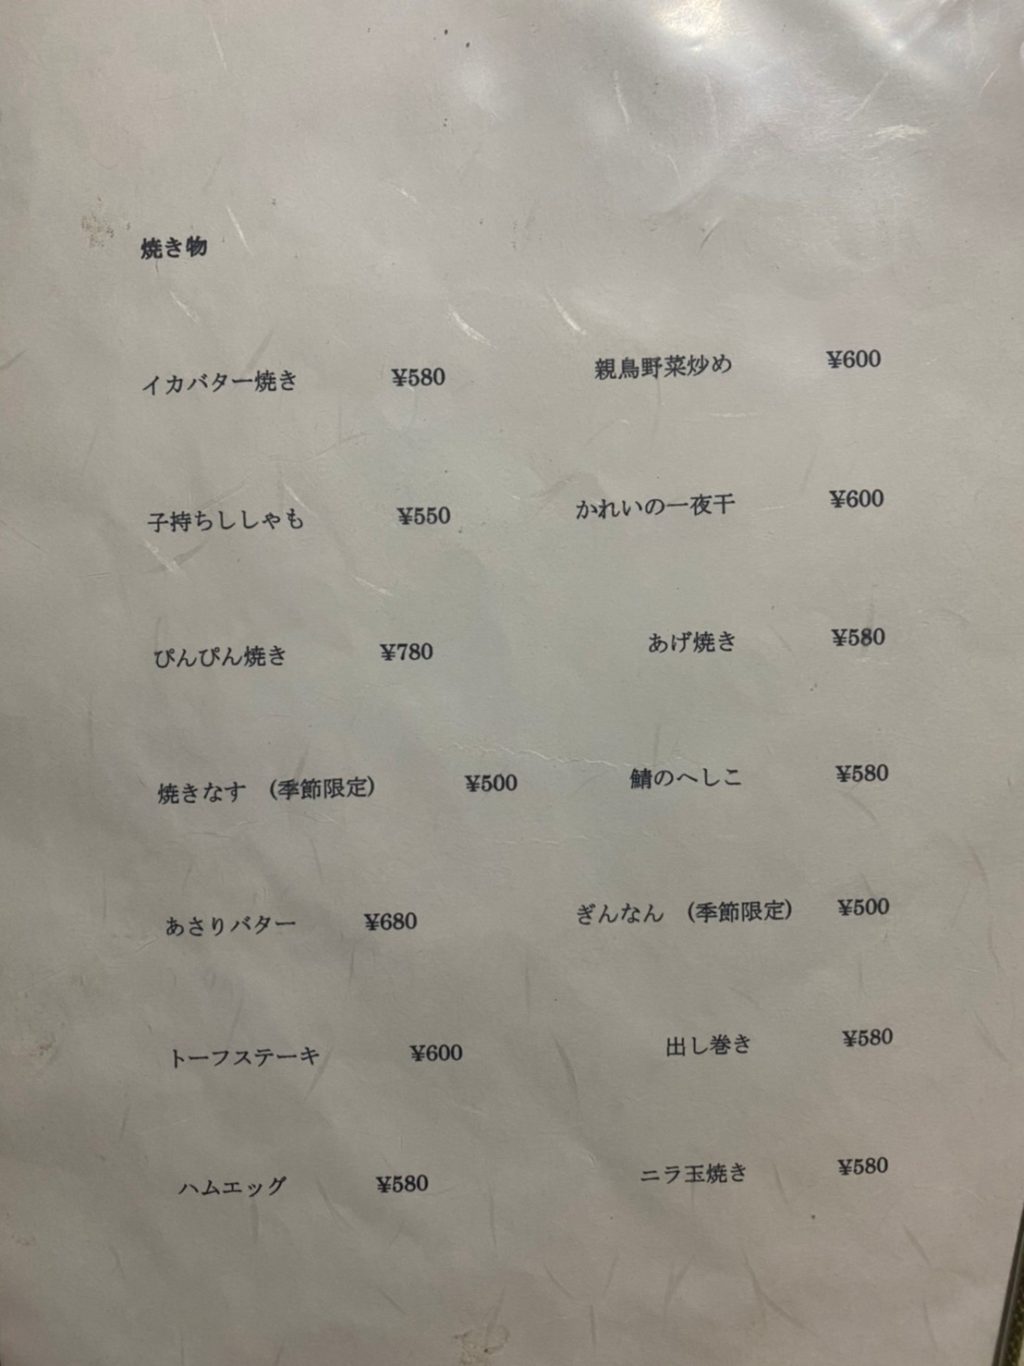 焼き物
イカバター焼き ¥580
親鳥野菜炒め ¥600
子持ちししゃも ¥550
かれいの一夜干 ¥600
ぴんぴん焼き ¥780
あげ焼き ¥580
焼きなす (季節限定) ¥500
鯖のへしこ ¥580
あさりバター ¥680
ぎんなん (季節限定) ¥500
トーフステーキ ¥600
出し巻き ¥580
ハムエッグ ¥580
ニラ玉焼き ¥580